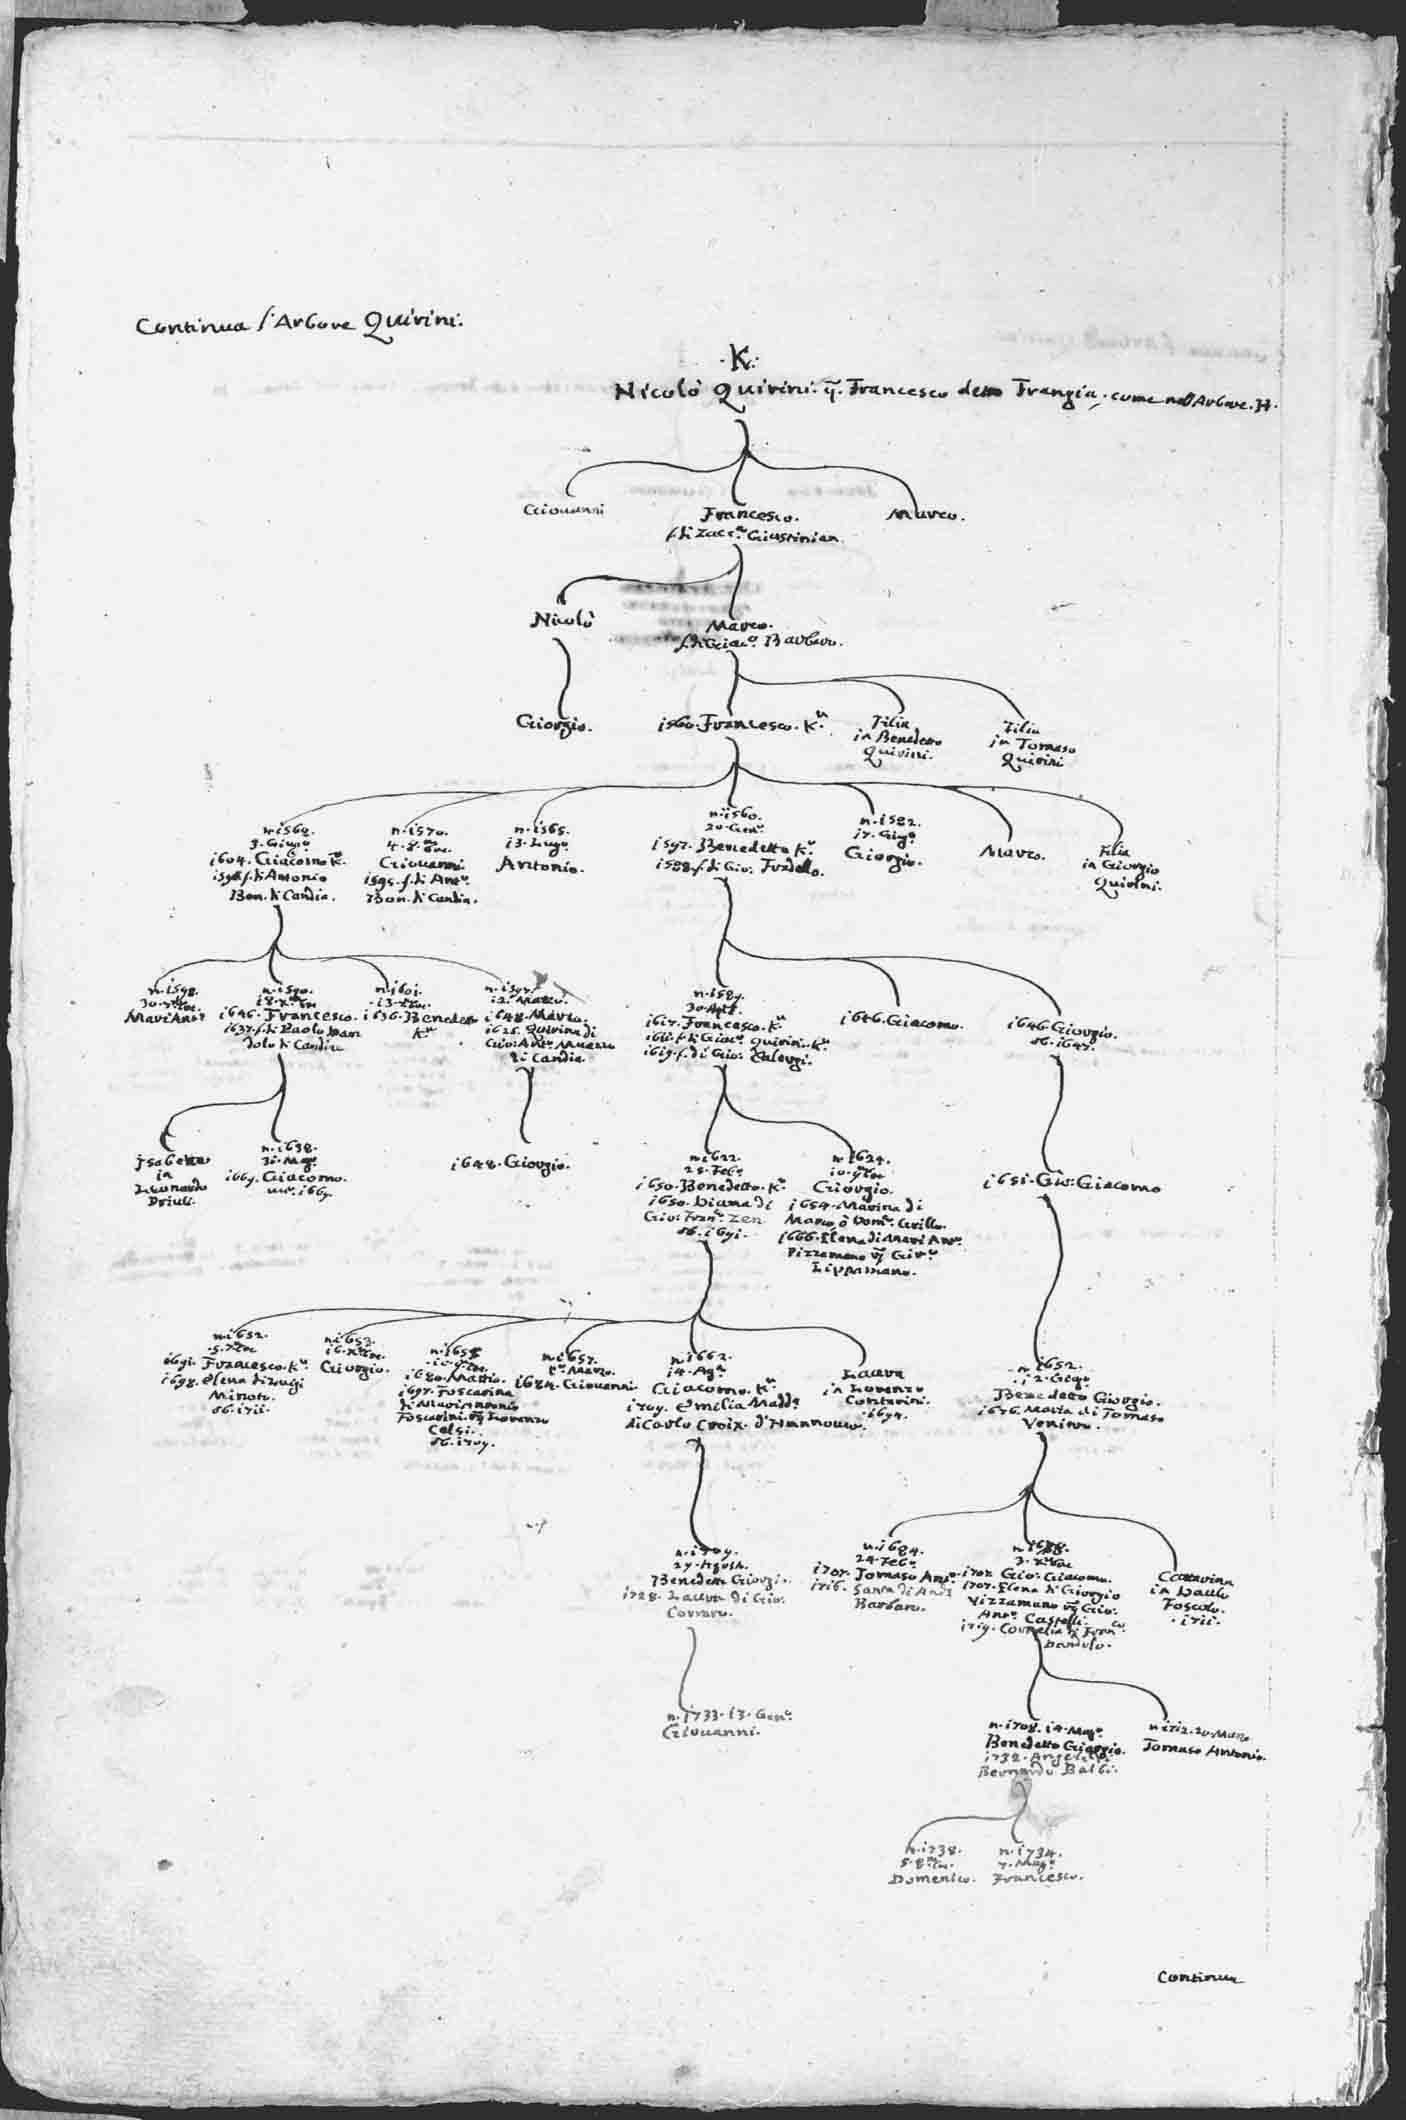 Continua l'Arbore Quirini.
.K.
Nicolò Quirini. q. Francesco detto Frangia, come nell'Arbore. H.
Giouanni
Francesco.
f. di Zacc.a Giustinian.
Marco.
Nicolò
Marco.
f. di Giac.o Barbaro.
Giorgio.
1560. Francesco. K.r
Filia
in Benedetto
Quirini.
Filia
in Tomaso
Quirini
n. 1568.
9. Giug.o
1604. Giacomo K.r
f. di Antonio
Bon. di Candia.
n. 1570.
4. 8.bre
Giouanni
1595. f. di Ant.o
Bon. di Candia.
n. 1565.
13. Lug.o
Antonio.
n. 1560.
20. Gen.o
1597. Benedetto K.r
1588. f. di Gio: Fradello.
n. 1582.
17. Giug.o
Giorgio.
Marco.
Filia
in Giorgio
Quirini.
n. 1598.
Mari Ant.o
n. 1590.
18. X.bre
1646. Francesco.
1637. f. di Paolo Dan
dolo di Candia
n. 1601.
1636. Benedetto
K.r
12. Marzo.
1648. Marco.
1626. Quirina di
Gio: Ant.o Muazzo
di Candia.
n. 1589.
1617. Francesco. K.r
f. di Giac.o Quirini. K.r
1619. f. di Gio: Calergi.
1646. Giacomo.
1646. Giorgio.
ob. 1647.
Isabetta
in
Leonardo
Driuli.
n. 1638.
31. Mag.o
1667. Giacomo.
1648. Giorgio.
n. 1622.
25. Feb.o
1650. Benedetto. K.r
1650. Diana di
Gio: Fran.o Zen
ob. 1691.
n. 1624.
Giorgio.
1654. Marina di
Marco ò Dom.o Grillo.
1666. Elena di Mari Ant.o
Pizzamano
Lippamano.
1651. Gio: Giacomo
n. 1652.
5. X.bre
1691. Francesco. K.r
1698. Elena di Luigi
Minoto.
ob. 1711.
n. 1653.
Giorgio.
1680. Mattio.
1697. Foscarina
di Mari Antonio
Foscarini. Lorenzo
Celsi.
ob. 1709.
n. 1657.
Marzo.
1684. Giouanni
n. 1662.
14. Ag.o
Giacomo. K.r
1709. Emilia Madd.a
di Carlo Croix. d'Hannouer.
Laura
in Lorenzo
Contarini.
1694.
n. 1652.
12. Giug.o
Benedetto Giorgio.
1676. Maria di Tomaso
Veniero.
27. Agosto.
Benedetto Giorgio.
1728. Laura di Gio:
Corraro.
n. 1684.
24. Feb.o
1707. Tomaso Ant.o
1716. Santa di And.a
Barbaro.
3. X.bre
1707. Gio: Giacomo.
1707. Elena di Giorgio
Vizzamano Gio:
Ant.o Castelli.
1719. Cornelia di Fran.co
Dandolo.
Cattarina
in Paulo
Foscolo.
1711.
n. 1733. 13. Gen.o
Giouanni.
n. 1708. 14. Mag.o
Benedetto Giorgio.
1732. Angela
Bernardo Balbi.
n. 1712. 20. Marzo
Tomaso Antonio.
n. 1738.
5. 8.bre
Domenico.
n. 1734.
7. Mag.o
Francesco.
Continua